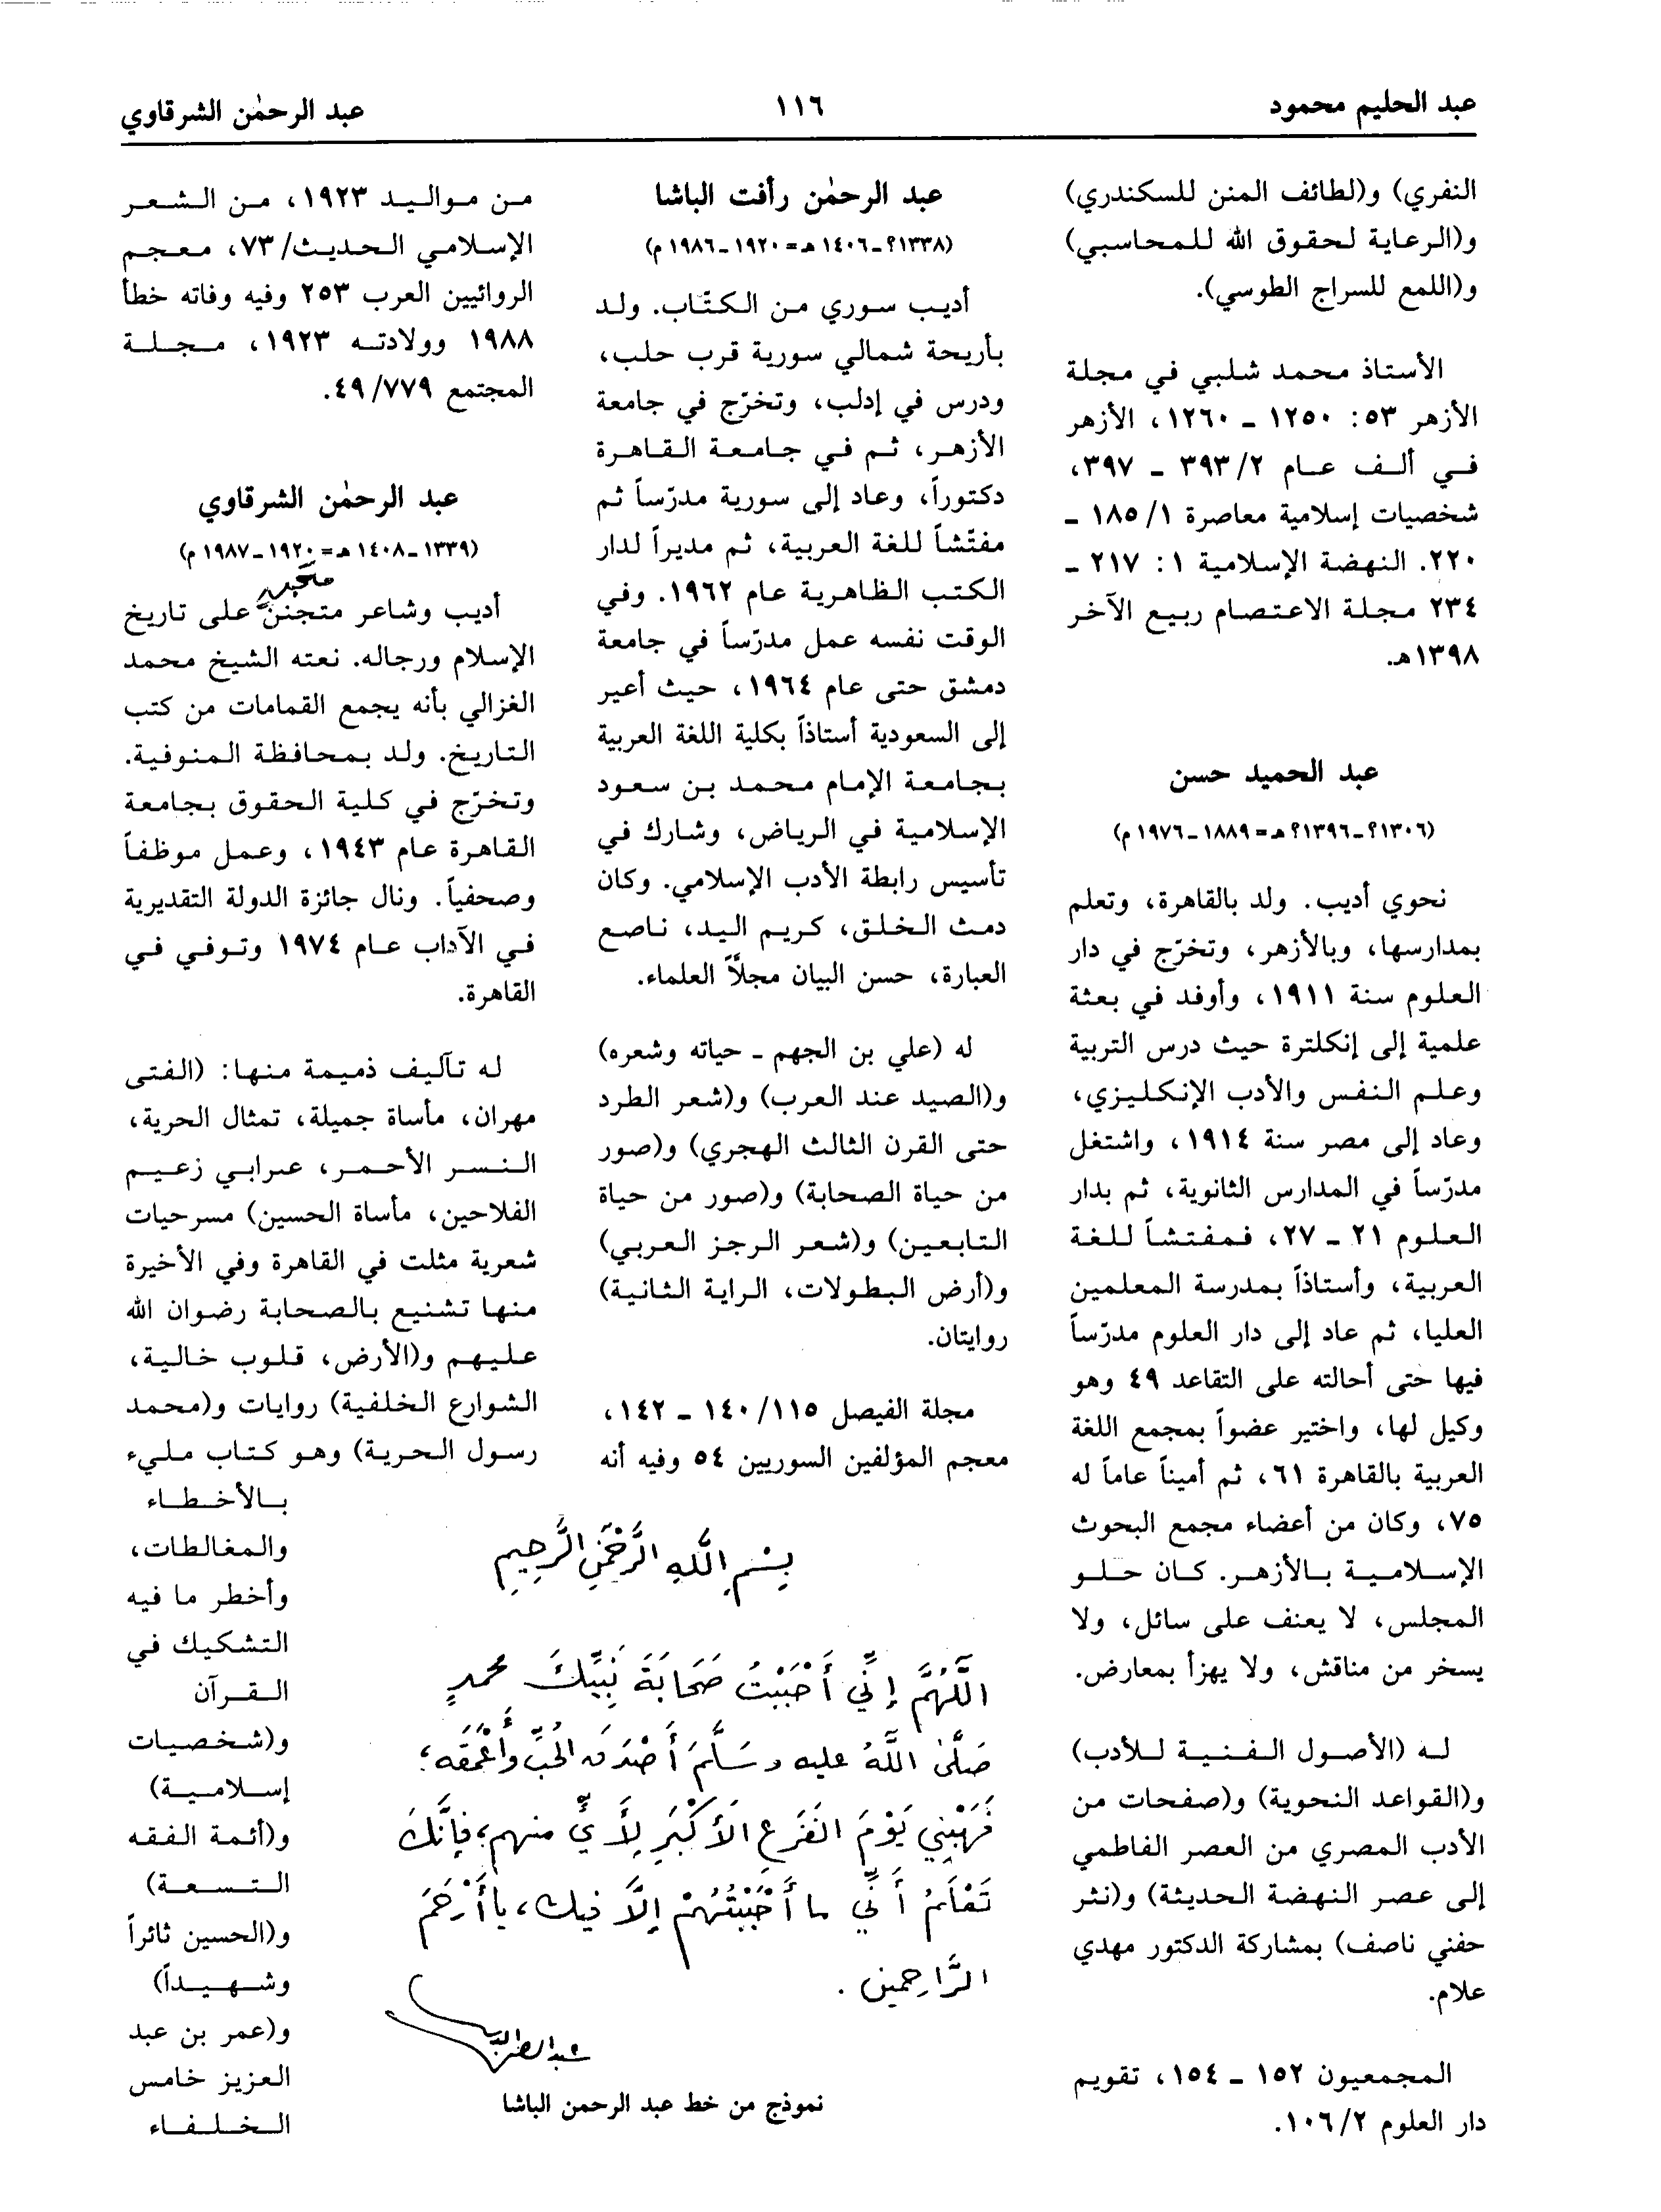 عبد الحليم محمود
١١٦
عبد الرحمٰن الشرقاوي
النفري) و(لطائف المنن للسكندري)
و(الرعاية لحقوق الله للمحاسبي)
و(اللمع للسراج الطوسي).
الأستاذ محمد شلبي في مجلة
الأزهر ٥٣: ١٢٥٠ - ١٢٦٠، الأزهر
في ألف عام ٣٩٣/٢ - ٣٩٧،
شخصيات إسلامية معاصرة ١٨٥/١ -
٢٢٠. النهضة الإسلامية ١: ٢١٧ -
٢٣٤ مجلة الاعتصام ربيع الآخر
١٣٩٨هـ.
عبد الحميد حسن
(١٣٠٦؟ - ١٣٩٦؟ هـ = ١٨٨٩ - ١٩٧٦ م)
نحوي أديب. ولد بالقاهرة، وتعلم
بمدارسها، وبالأزهر، وتخرّج في دار
العلوم سنة ١٩١١، وأوفد في بعثة
علمية إلى إنكلترة حيث درس التربية
وعلم النفس والأدب الإنكليزي،
وعاد إلى مصر سنة ١٩١٤، واشتغل
مدرّساً في المدارس الثانوية، ثم بدار
العلوم ٢١ - ٢٧، فمفتشاً للغة
العربية، وأستاذاً بمدرسة المعلمين
العليا، ثم عاد إلى دار العلوم مدرّساً
فيها حتى أحالته على التقاعد ٤٩ وهو
وكيل لها، واختير عضواً بمجمع اللغة
العربية بالقاهرة ٦١، ثم أميناً عاماً له
٧٥، وكان من أعضاء مجمع البحوث
الإسلامية بالأزهر. كان حلو
المجلس، لا يعنف على سائل، ولا
يسخر من مناقش، ولا يهزأ بمعارض.
له (الأصول الفنية للأدب)
و(القواعد النحوية) و(صفحات من
الأدب المصري من العصر الفاطمي
إلى عصر النهضة الحديثة) و(نثر
حفني ناصف) بمشاركة الدكتور مهدي
علام.
المجمعيون ١٥٢ - ١٥٤، تقويم
دار العلوم ١٠٦/٢.
عبد الرحمٰن رأفت الباشا
(١٣٣٨؟ - ١٤٠٦ هـ = ١٩٢٠ - ١٩٨٦ م)
أديب سوري من الكتّاب. ولد
بأريحة شمالي سورية قرب حلب،
ودرس في إدلب، وتخرّج في جامعة
الأزهر، ثم في جامعة القاهرة
دكتوراً، وعاد إلى سورية مدرّساً ثم
مفتّشاً للغة العربية، ثم مديراً لدار
الكتب الظاهرية عام ١٩٦٢. وفي
الوقت نفسه عمل مدرّساً في جامعة
دمشق حتى عام ١٩٦٤، حيث أعير
إلى السعودية أستاذاً بكلية اللغة العربية
بجامعة الإمام محمد بن سعود
الإسلامية في الرياض، وشارك في
تأسيس رابطة الأدب الإسلامي. وكان
دمث الخلق، كريم اليد، ناصع
العبارة، حسن البيان مجلاًّ العلماء.
له (علي بن الجهم - حياته وشعره)
و(الصيد عند العرب) و(شعر الطرد
حتى القرن الثالث الهجري) و(صور
من حياة الصحابة) و(صور من حياة
التابعين) و(شعر الرجز العربي)
و(أرض البطولات، الراية الثانية)
روايتان.
مجلة الفيصل ١٤٠/١١٥ - ١٤٢،
معجم المؤلفين السوريين ٥٤ وفيه أنه
بِسْمِ اللَّهِ الرَّحْمَنِ الرَّحِيمِ
اللَّهُمَّ إِنِّي أَحْبَبْتُ صَحَابَةَ نَبِيِّكَ محمدٍ
صَلَّىٰ اللَّهُ عليه وسَلَّمَ أَصْدَقَ الحُبِّ وأَعْمَقَه؛
فَهَبْنِي يَوْمَ الفَزَعِ الأَكْبَرِ لِأَيٍّ منهم؛ فإِنَّكَ
تَعْلَمُ أَنِّي ما أَحْبَبْتُهُمْ إِلَّا فيك، يا أَرْحَمَ
الرَّاحِمين.
نموذج من خط عبد الرحمن الباشا
من مواليد ١٩٢٣، من الشعر
الإسلامي الحديث/٧٣، معجم
الروائيين العرب ٢٥٣ وفيه وفاته خطأ
١٩٨٨ وولادته ١٩٢٣، مجلة
المجتمع ٤٩/٧٧٩.
عبد الرحمٰن الشرقاوي
(١٣٣٩ - ١٤٠٨ هـ = ١٩٢٠ - ١٩٨٧ م)
أديب وشاعر متجنن على تاريخ
الإسلام ورجاله. نعته الشيخ محمد
الغزالي بأنه يجمع القمامات من كتب
التاريخ. ولد بمحافظة المنوفية.
وتخرّج في كلية الحقوق بجامعة
القاهرة عام ١٩٤٣، وعمل موظفاً
وصحفياً. ونال جائزة الدولة التقديرية
في الآداب عام ١٩٧٤ وتوفي في
القاهرة.
له تآليف ذميمة منها: (الفتى
مهران، مأساة جميلة، تمثال الحرية،
النسر الأحمر، عرابي زعيم
الفلاحين، مأساة الحسين) مسرحيات
شعرية مثلت في القاهرة وفي الأخيرة
منها تشنيع بالصحابة رضوان الله
عليهم و(الأرض، قلوب خالية،
الشوارع الخلفية) روايات و(محمد
رسول الحرية) وهو كتاب مليء
بالأخطاء
والمغالطات،
وأخطر ما فيه
التشكيك في
القرآن
و(شخصيات
إسلامية)
و(أئمة الفقه
التسعة)
و(الحسين ثائراً
وشهيداً)
و(عمر بن عبد
العزيز خامس
الخلفاء